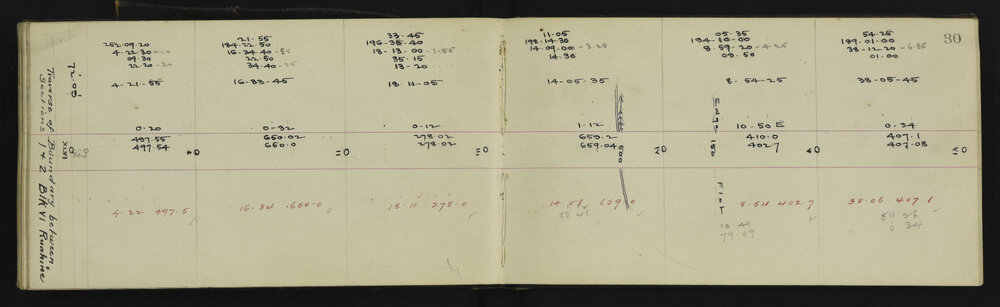 30
Traverse of Boundary between
Sections 1 + 2 Blk VI Ruahine
72.09
XLVI
0
252.09.20
4.22.30
09.30
22.20 -20
4-21-55
0-20
497.55
497.54
4.22 497.5
0
21.55
184.22.50
16.34.40-55
22.50
34.40
16-33-45
0-32
650.02
650.0
16.34 .650.0
0
33.45
196-35-40
18-13-00 -1.55
35.15
13-20
18-11-05
0-12
278.02
278.02
18.11 278.0
0
11.05
198-14-30
14-09.00 -3.25
14.30
14-05-35
1-12
659.2
659.04
659.0
500
0
05.35
194-10-00
8.59.20 -4.55
09.50
8-54-25
Edge 150
Flat
10.50 E
410.0
402.7
8.54 402.7
10 40
79.09
0
54.25
189.01.00
38-12-20 -6.35
01.00
38-05-45
0-34
407.1
407.08
38.06 407.1
89 26
0.34
0